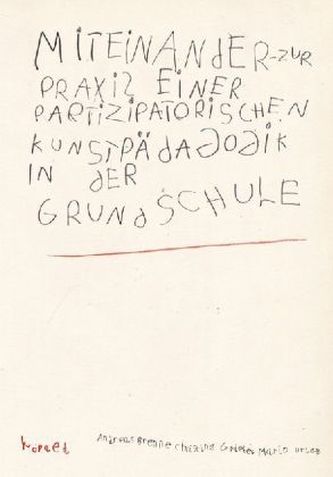 MITEINANdER-ZUR
PRAXIS EINER
PARTIZIPATORISCHEN
KUNSTPÄdAGOGIK
IN dER
GRUNdSCHULE
kopaed
Andreas Brenne Christina Griebel Mario Urlaß